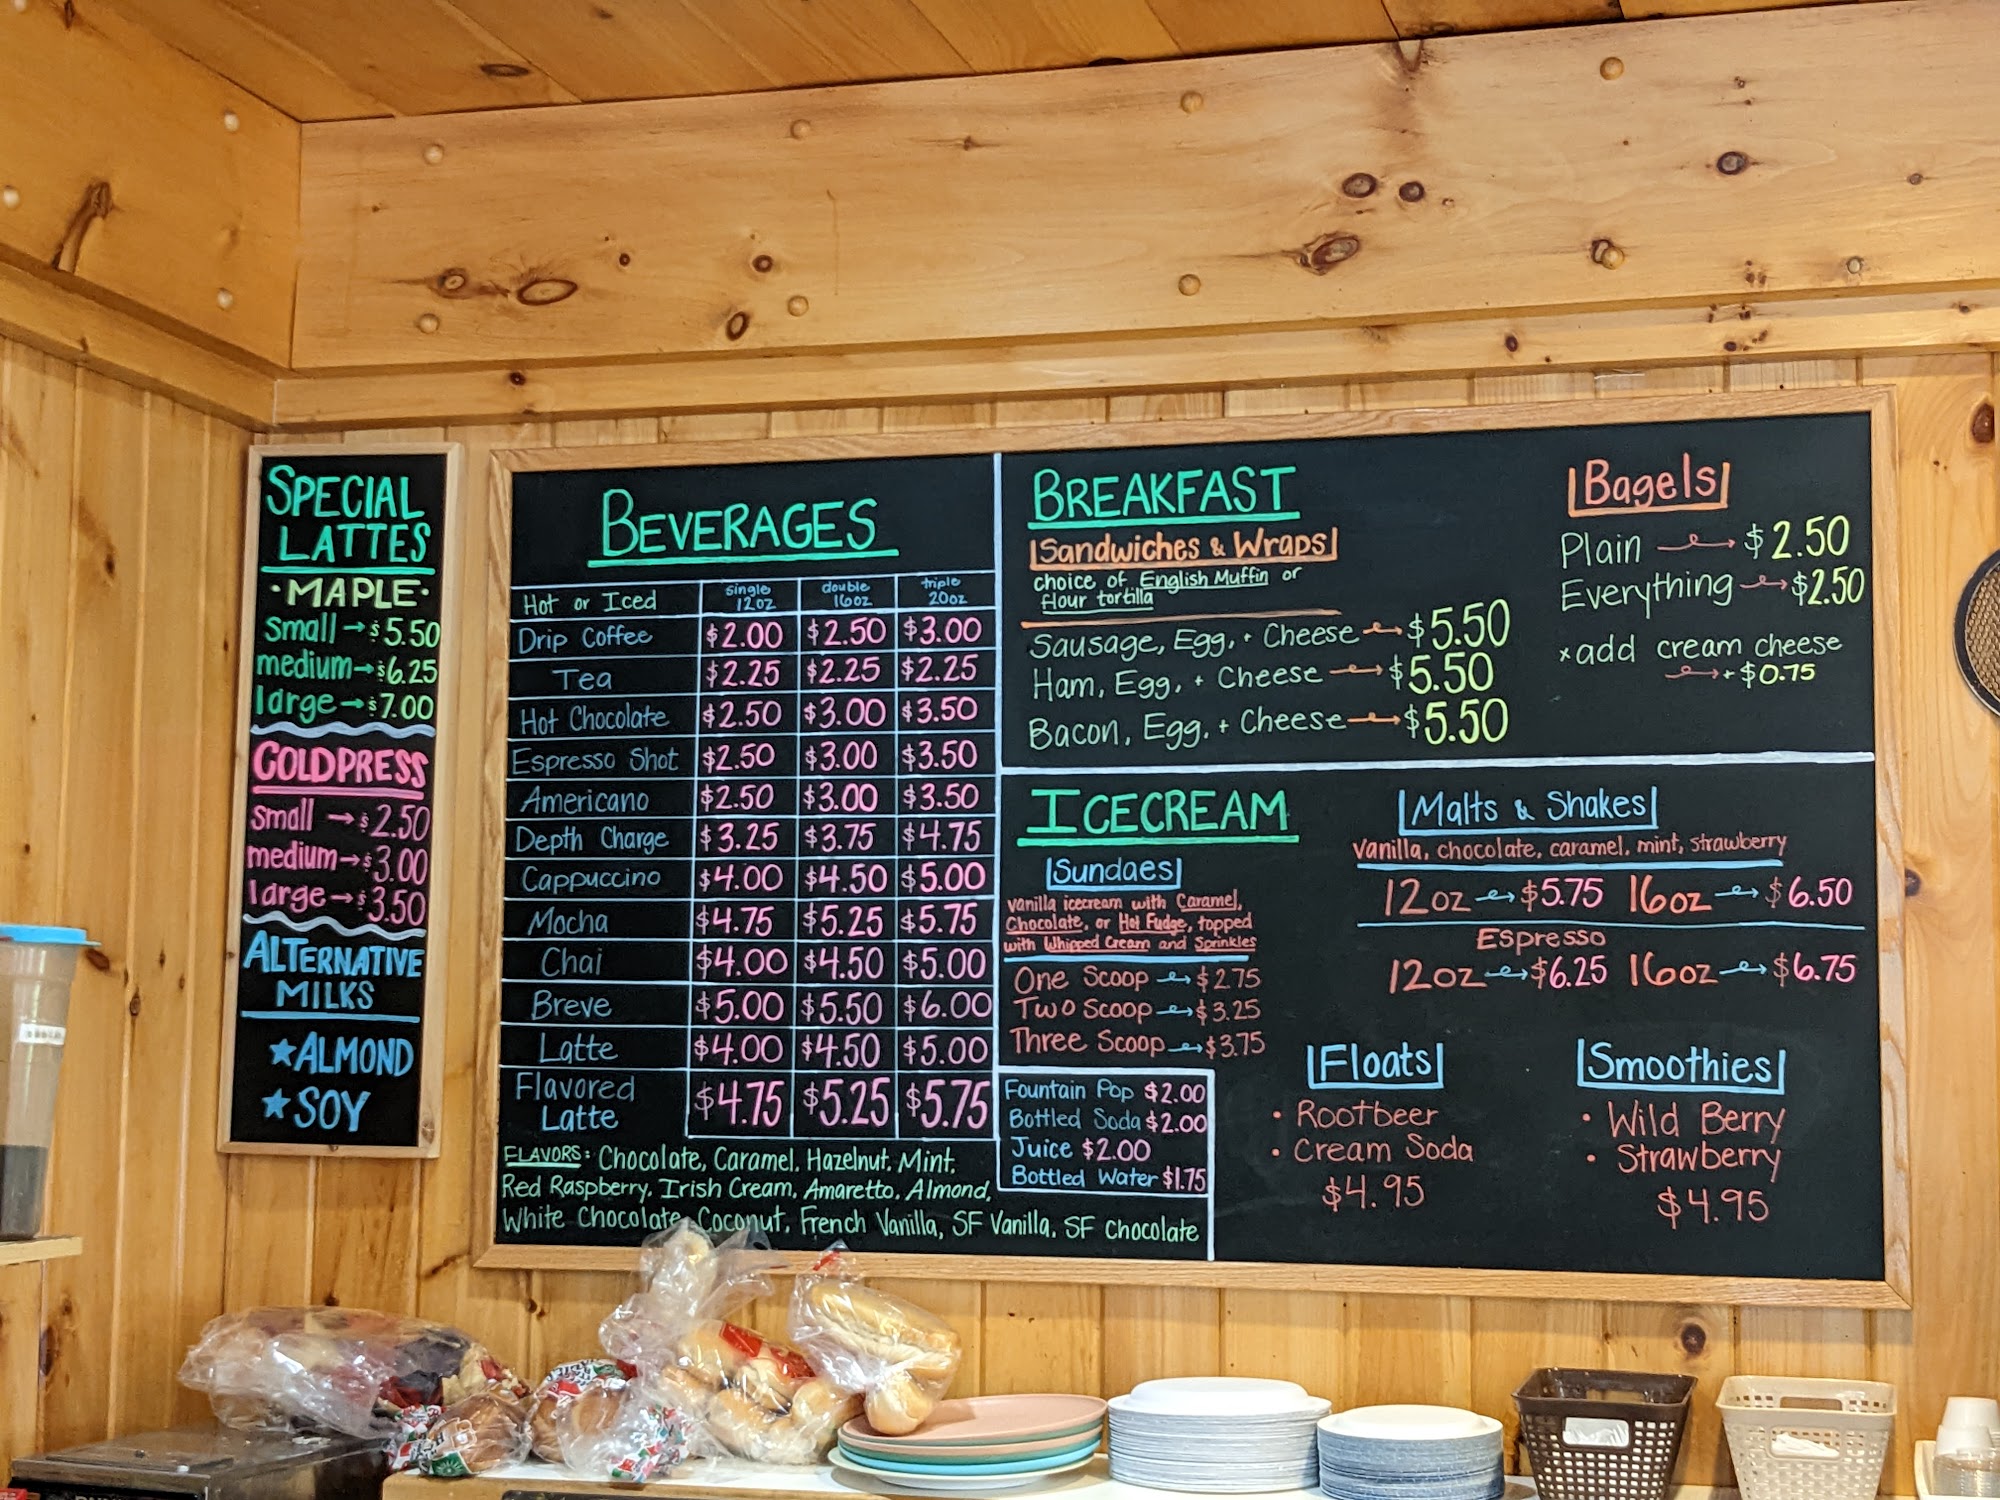 SPECIAL
LATTES
·MAPLE·
small→$5.50
medium→$6.25
large→$7.00
COLDPRESS
small→$2.50
medium→$3.00
large→$3.50
ALTERNATIVE
MILKS
★ALMOND
★SOY
BEVERAGES
Hot or Iced single 12oz double 16oz triple 20oz
Drip Coffee $2.00 $2.50 $3.00
Tea $2.25 $2.25 $2.25
Hot Chocolate $2.50 $3.00 $3.50
Espresso Shot $2.50 $3.00 $3.50
Americano $2.50 $3.00 $3.50
Depth Charge $3.25 $3.75 $4.75
Cappuccino $4.00 $4.50 $5.00
Mocha $4.75 $5.25 $5.75
Chai $4.00 $4.50 $5.00
Breve $5.00 $5.50 $6.00
Latte $4.00 $4.50 $5.00
Flavored
Latte $4.75 $5.25 $5.75
FLAVORS: Chocolate, Caramel, Hazelnut, Mint,
Red Raspberry, Irish Cream, Amaretto, Almond,
White Chocolate, Coconut, French Vanilla, SF Vanilla, SF Chocolate
BREAKFAST
Sandwiches & Wraps
choice of English Muffin or
flour tortilla
Sausage, Egg, + Cheese→$5.50
Ham, Egg, + Cheese→$5.50
Bacon, Egg, + Cheese→$5.50
Bagels
Plain→$2.50
Everything→$2.50
*add cream cheese
→+$0.75
ICECREAM
Sundaes
vanilla icecream with Caramel,
Chocolate, or Hot Fudge, topped
with Whipped Cream and Sprinkles
One Scoop→$2.75
Two Scoop→$3.25
Three Scoop→$3.75
Fountain Pop $2.00
Bottled Soda $2.00
Juice $2.00
Bottled Water $1.75
Malts & Shakes
vanilla, chocolate, caramel, mint, strawberry
12oz→$5.75 16oz→$6.50
Espresso
12oz→$6.25 16oz→$6.75
Floats
· Rootbeer
· Cream Soda
$4.95
Smoothies
· Wild Berry
· Strawberry
$4.95